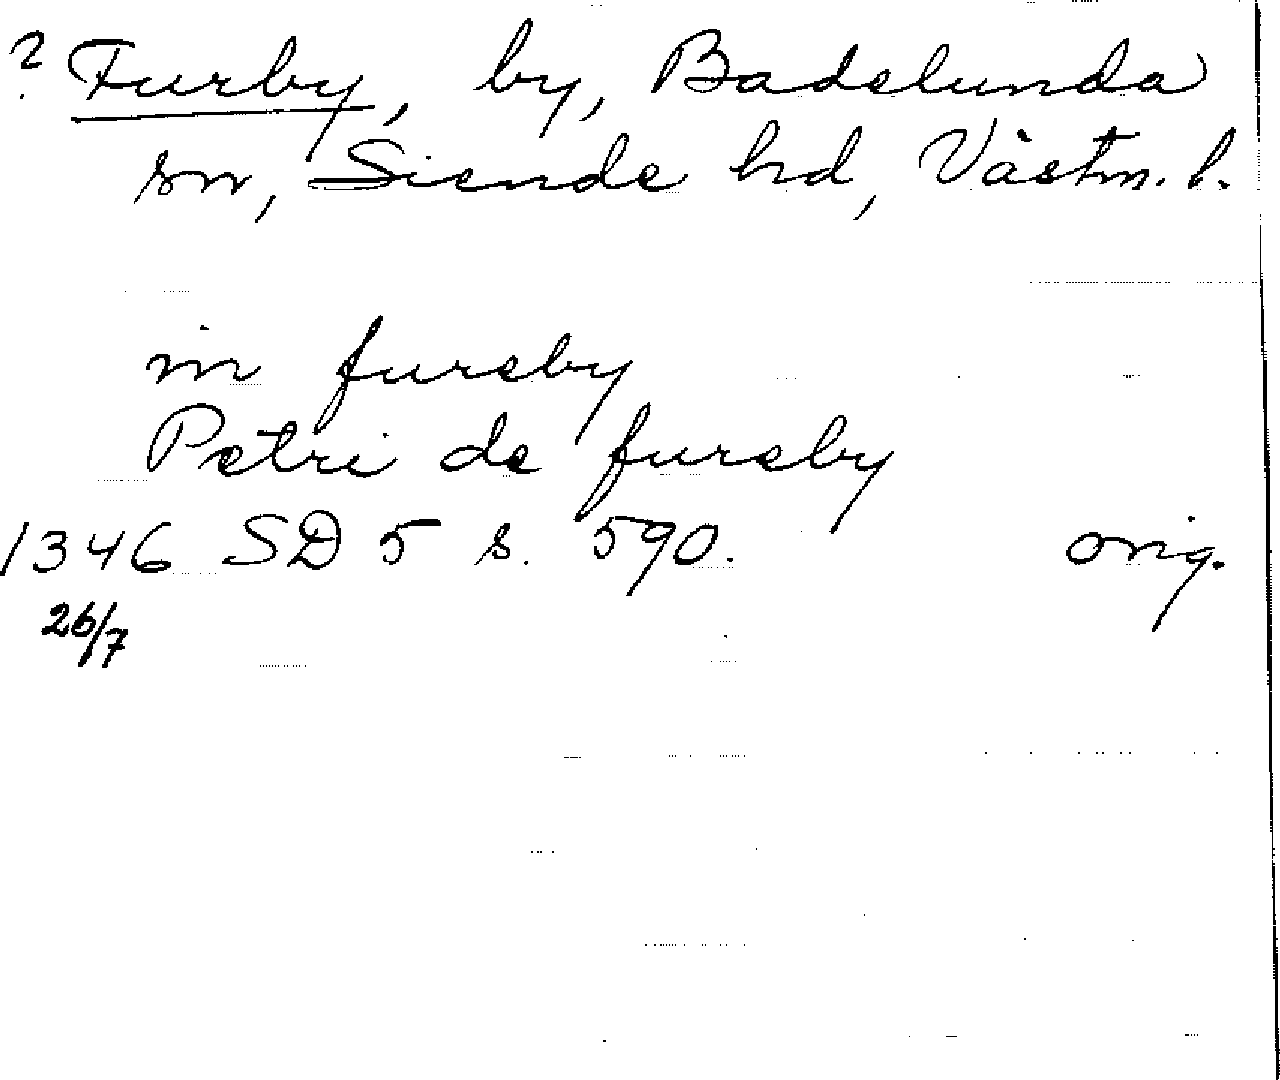 ? Furby, by, Badelunda
sn, Siende hd, Västm. l.
in fureby
Petri de fureby
1346 SD 5 s. 590. orig.
26/7